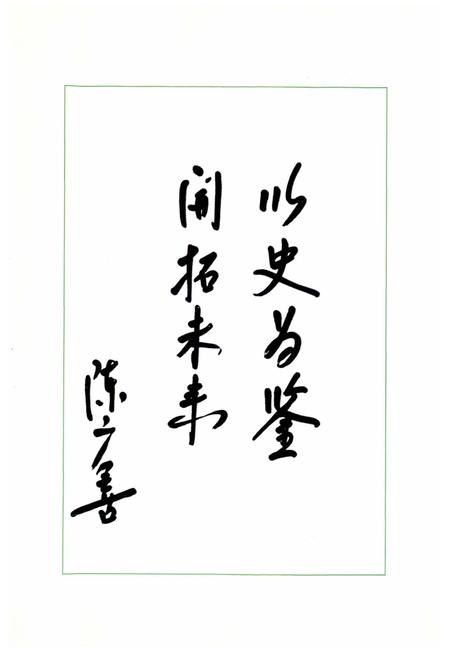 以史为鉴
開拓未来
陈广善